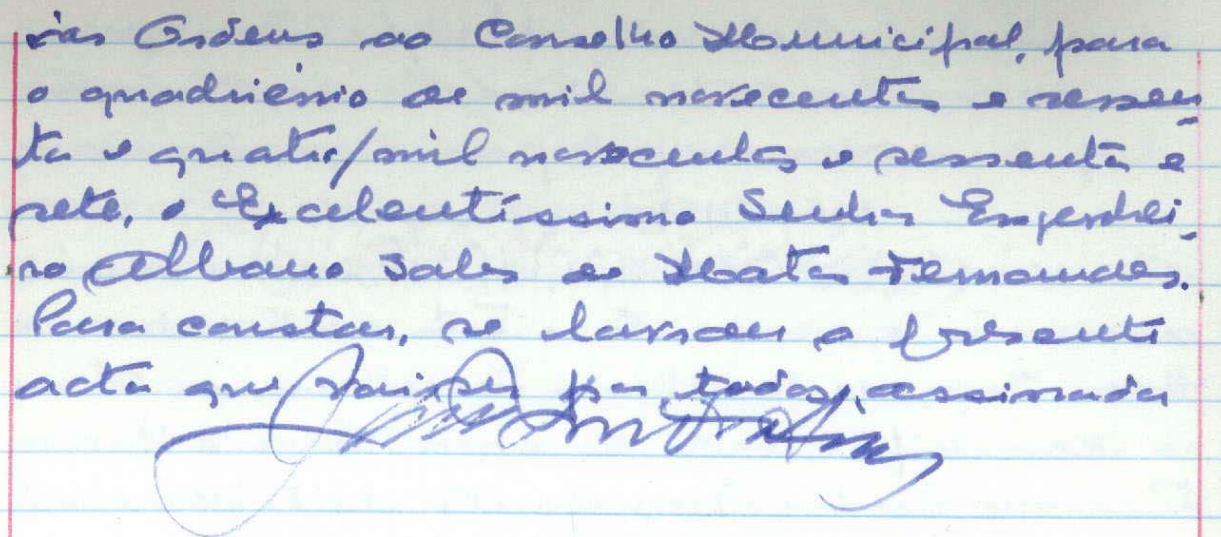 das Ordens ao Conselho Municipal, para
o quadriénio de mil novecentos e sessen-
ta e quatro/mil novecentos e sessenta e
sete, o Excelentíssimo Senhor Engenhei-
ro Albano Sales de Matos Fernandes.
Para constar, se lavrou a presente
acta que vai ser por todos assinada